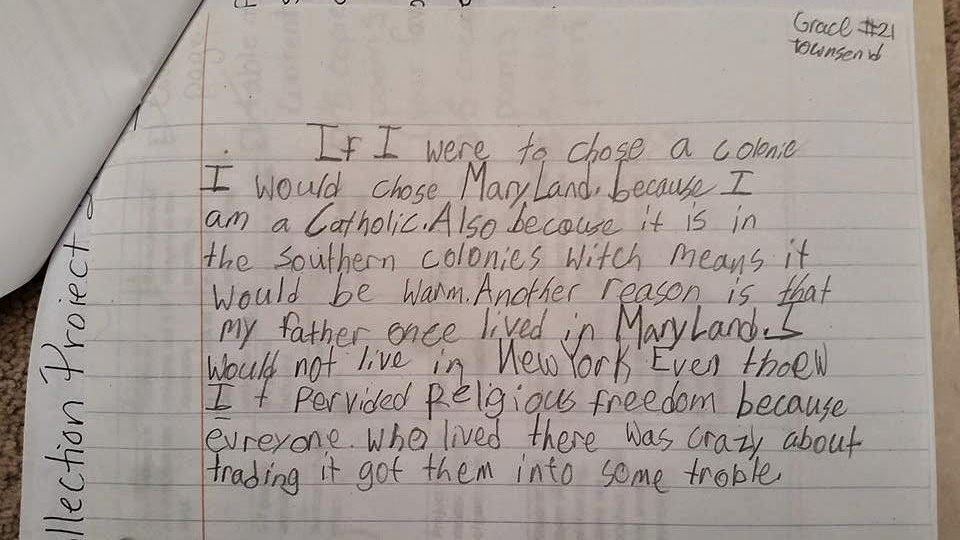 Grace #21
townsend
If I were to chose a colonie
I would chose MaryLand. because I
am a Catholic. Also because it is in
the Southern colonies witch means it
would be warm. Another reason is that
my father once lived in MaryLand. I
would not live in New York Even thoew
It pervided Religious freedom because
evreyone. who lived there was crazy about
trading it got them into some troble
llection Project